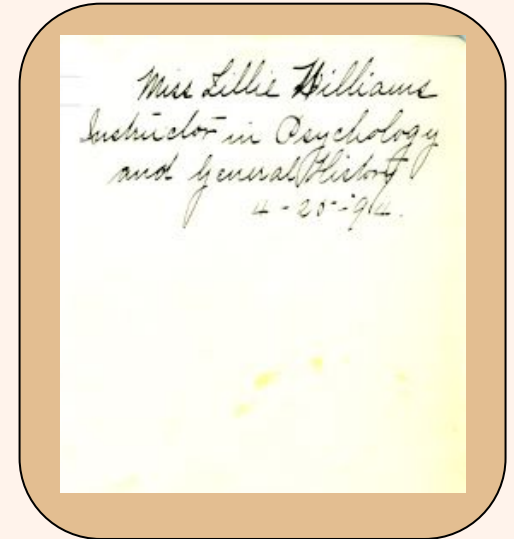 Miss Lillie Williams
Instructor in Psychology
and General History
4-20-94.